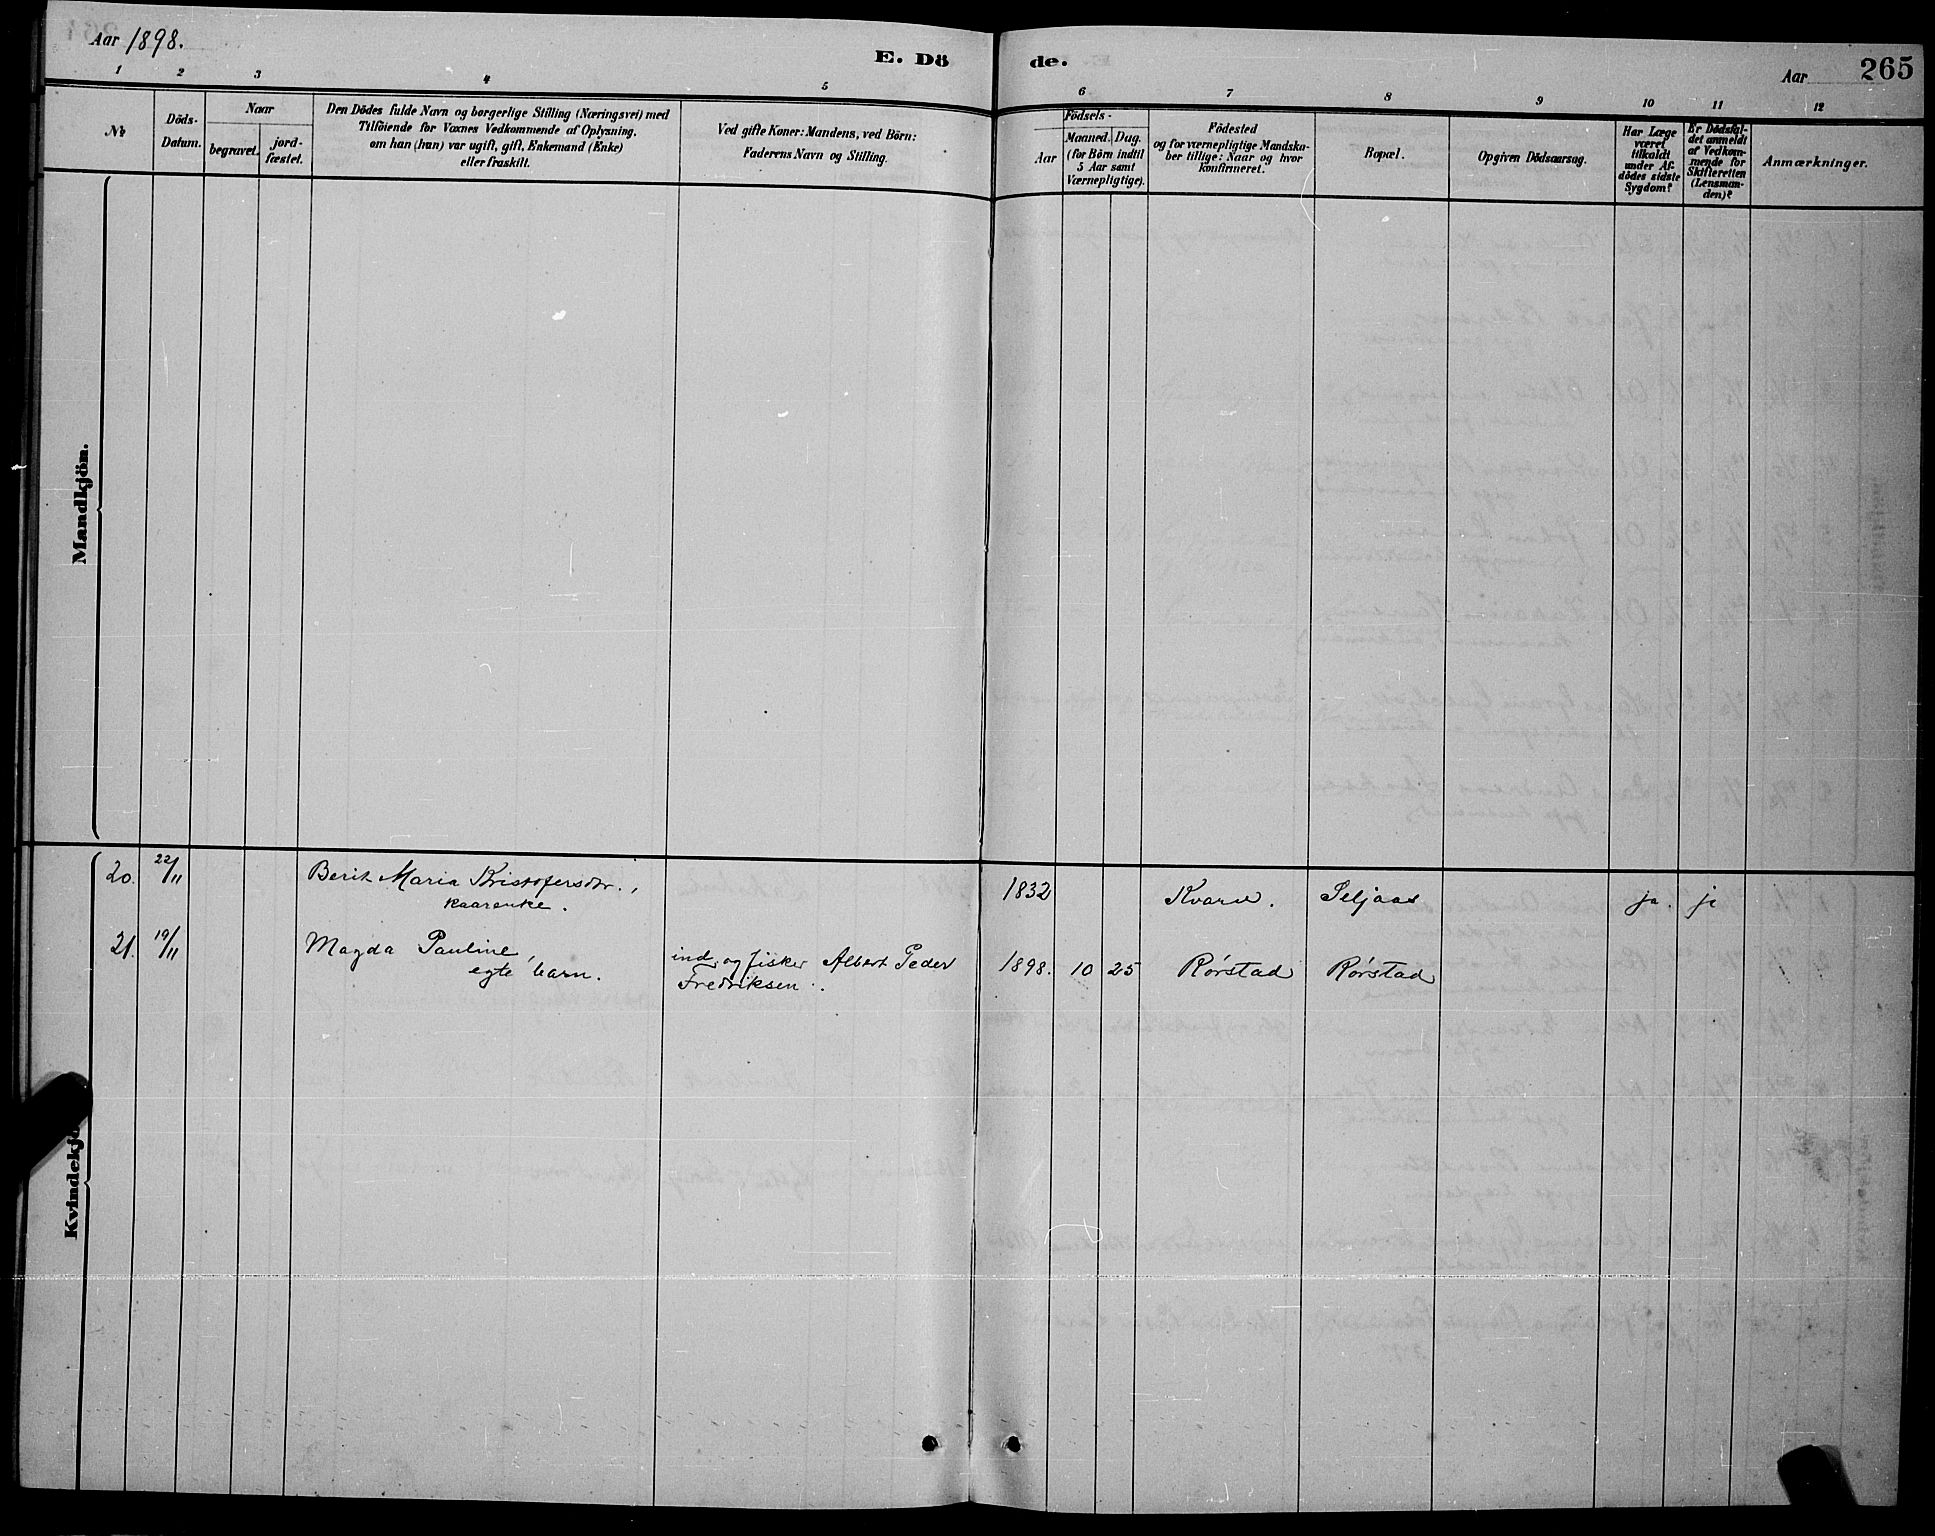 Aar 1898.
E. Dö
de.
Aar
265
1 2 3 4 5 6 7 8 9 10 11 12
№
Döds-
Datum.
Naar
begravet.
jord-
fæstet.
Den Dödes fulde Navn og borgerlige Stilling (Næringsvei) med
Tilföiende for Voxnes Vedkommende af Oplysning,
om han (hun) var ugift, gift, Enkemand (Enke)
eller fraskilt.
Ved gifte Koner: Mandens, ved Börn:
Faderens Navn og Stilling.
Födsels-
Aar
Maaned. Dag.
(for Börn indtil
5 Aar samt
Værnepligtige).
Födested
og for værnepligtige Mandska-
ber tillige: Naar og hvor
konfirmeret.
Bopæl.
Opgiven Dödsaarsag.
Har Læge
været
tilkaldt
under Af-
dödes sidste
Sygdom?
Er Dödsfal-
det anmeldt
af Vedkom-
mende for
Skifteretten
(Lensman-
den)?
Anmærkninger.
Mandkjön.
Kvindekjö
20. 22/11 Berit Maria Kristofersdtr., 1832 Kvarv. Seljaas ja. ja
kaarenke.
21. 19/11 Magda Pauline, ind. og fisker Albert Peder 1898. 10 25 Rørstad Rørstad
egte barn. Fredriksen.